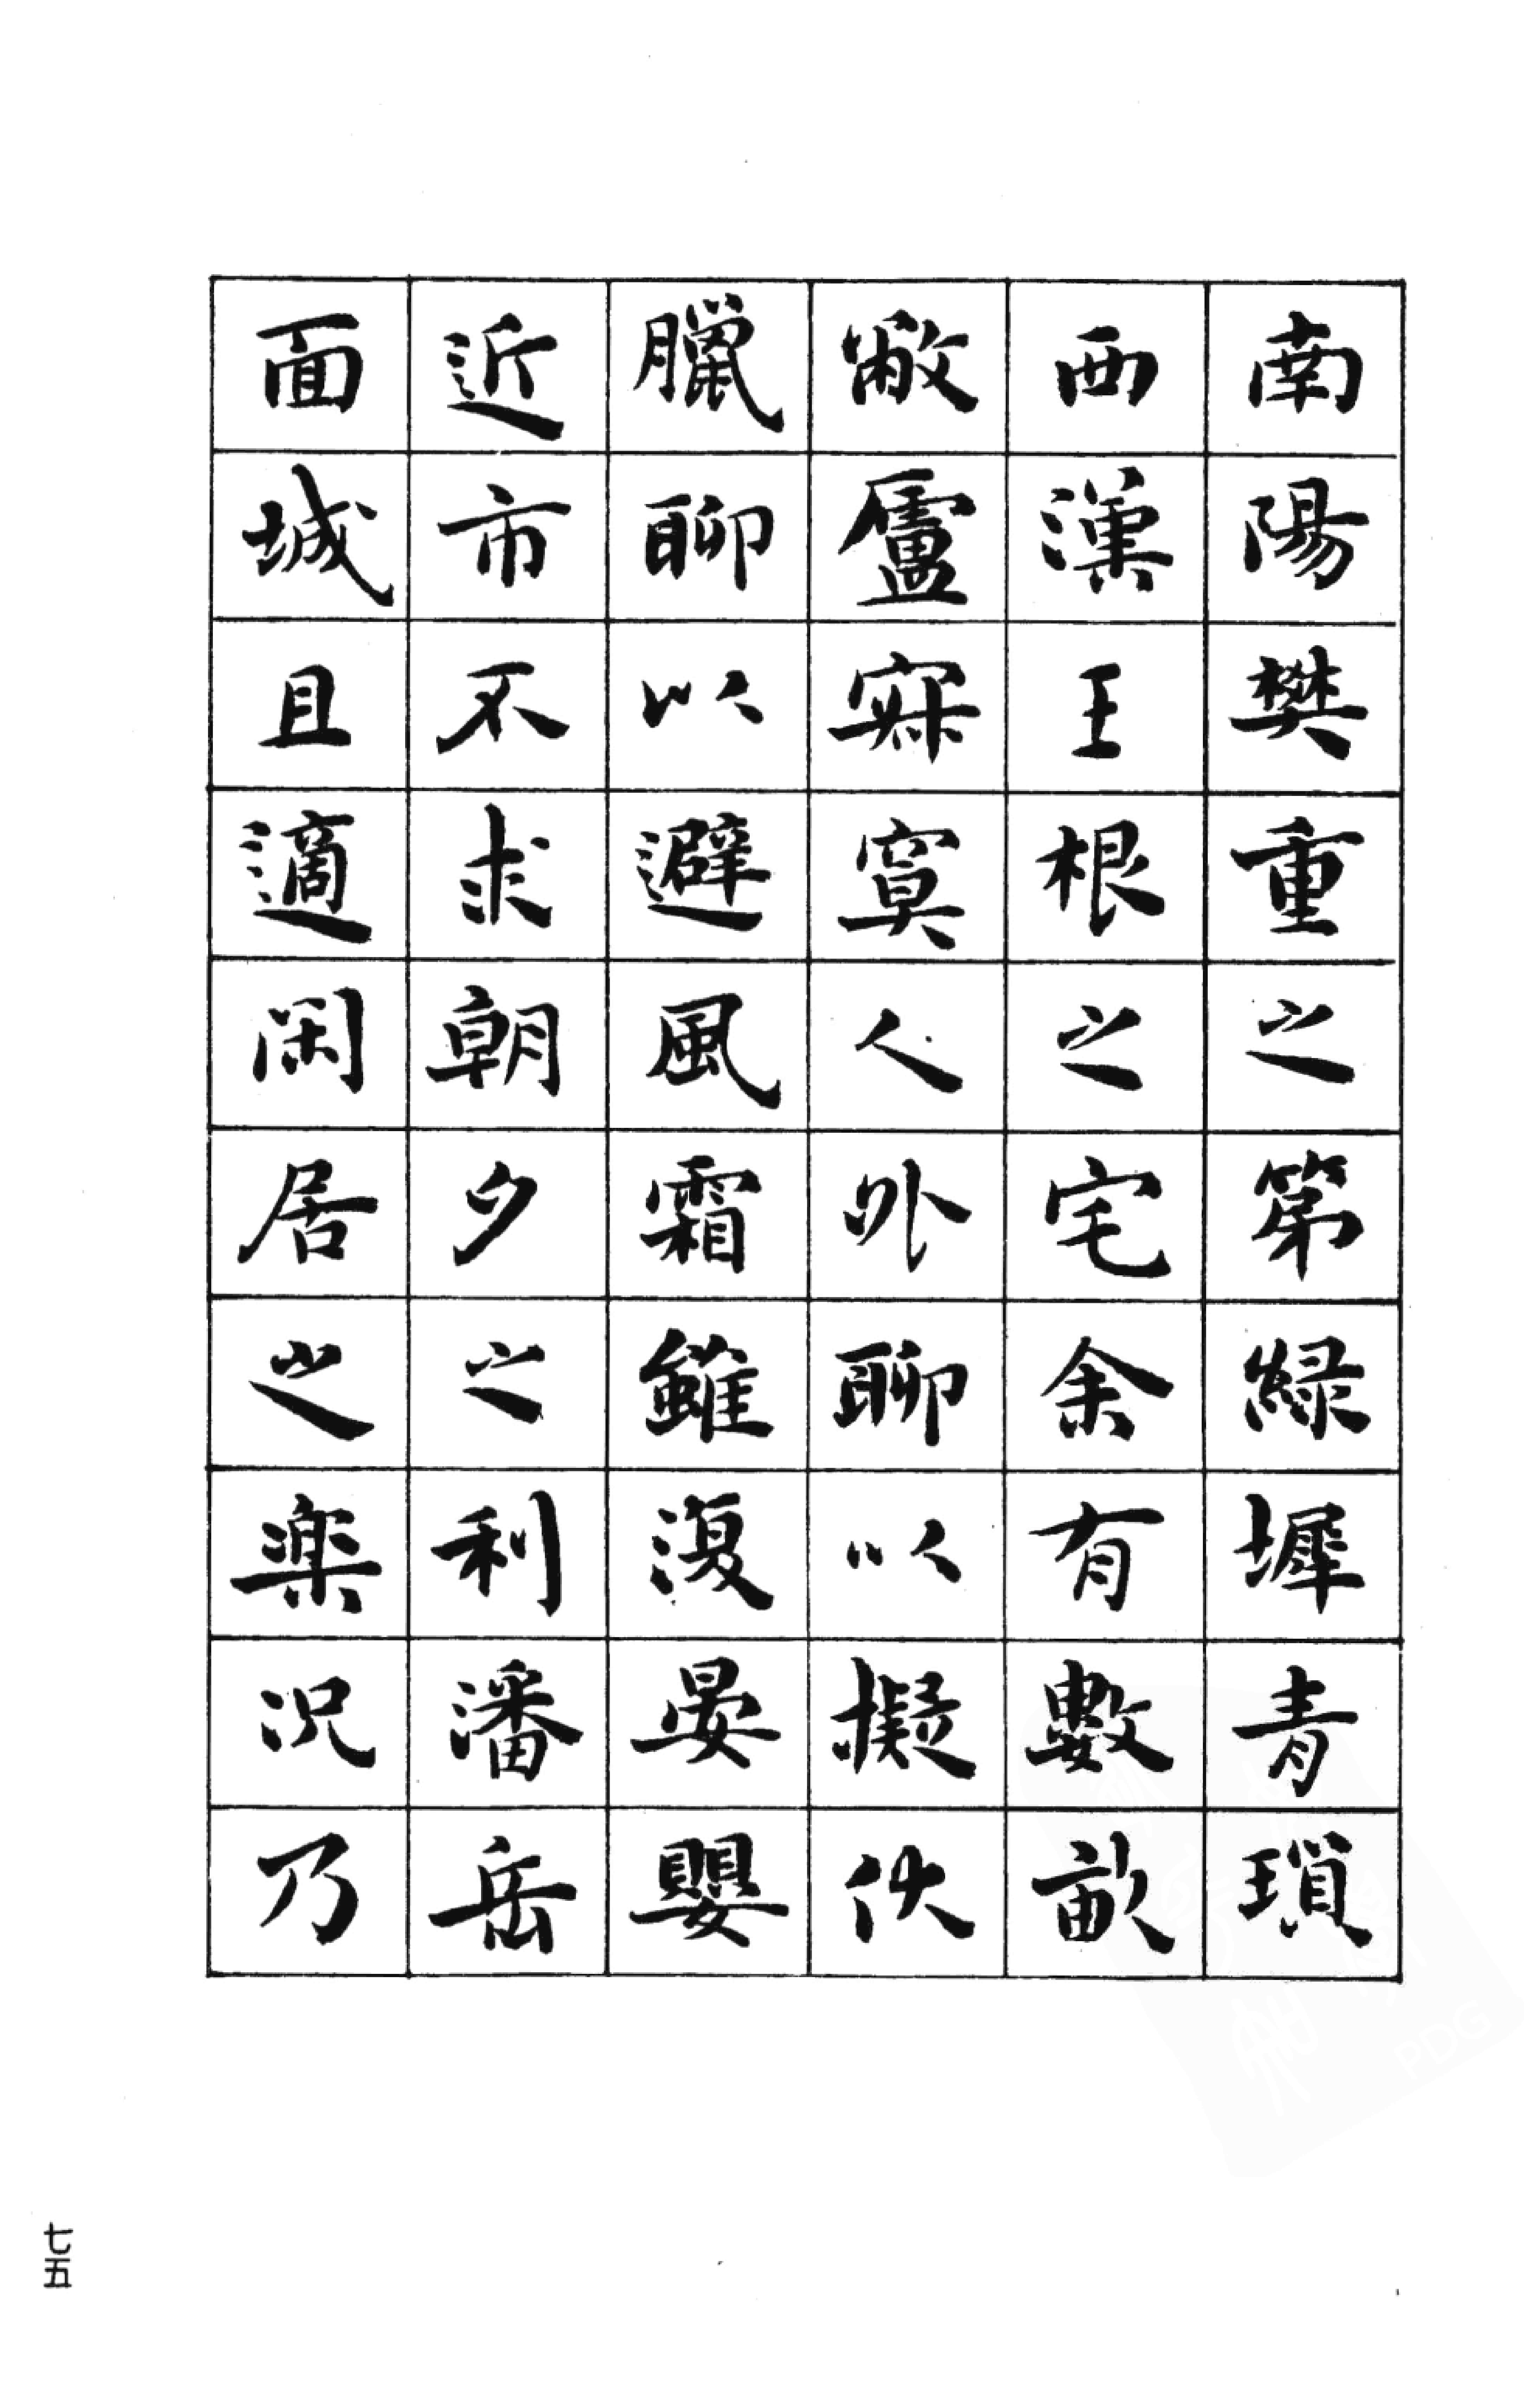 南陽樊重之第綠墀青瑣
西漢王根之宅余有數畝
敝廬寂寞人外聊以擬伏
臘聊以避風霜雖復晏嬰
近市不求朝夕之利潘岳
面城且適閑居之樂況乃
七五
PDG